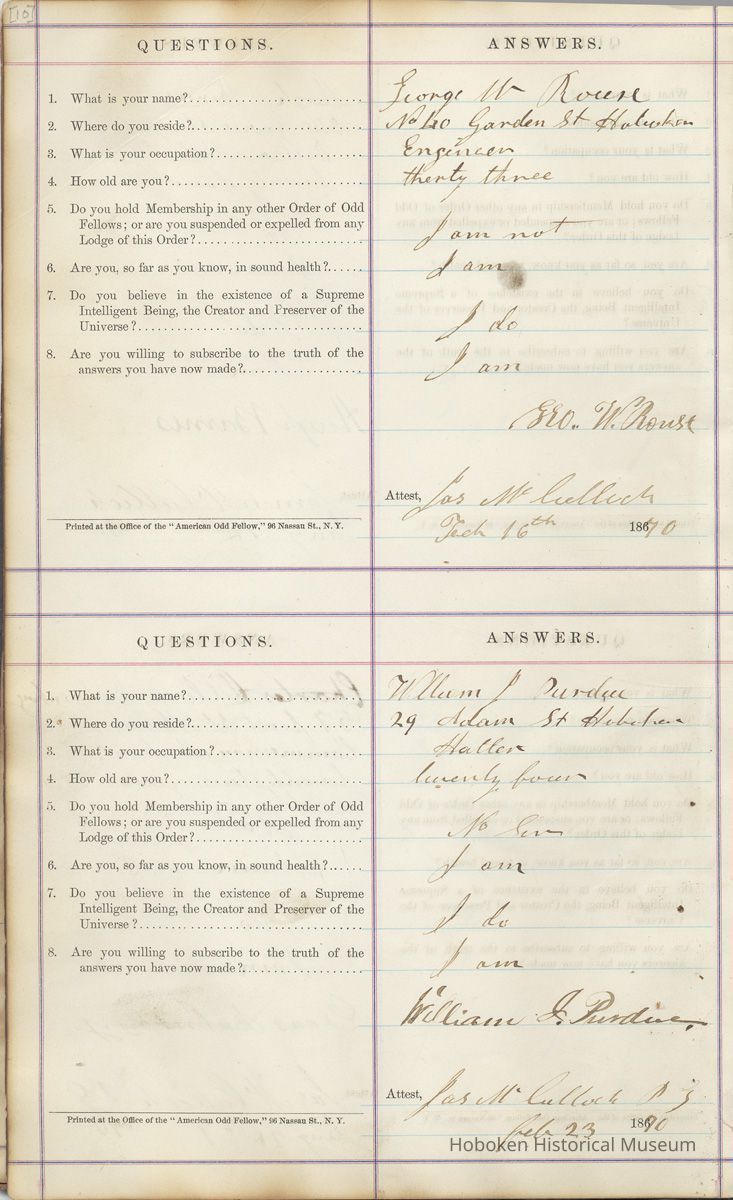 [10]
QUESTIONS. ANSWERS.
1. What is your name? George W Rouse
2. Where do you reside? No 40 Garden St Hoboken
3. What is your occupation? Engineer
4. How old are you? therty three
5. Do you hold Membership in any other Order of Odd
Fellows; or are you suspended or expelled from any
Lodge of this Order? I am not
6. Are you, so far as you know, in sound health? I am
7. Do you believe in the existence of a Supreme
Intelligent Being, the Creator and Preserver of the
Universe? I do
8. Are you willing to subscribe to the truth of the
answers you have now made? I am
Geo. W. Rouse
Attest, Jas McCulloch
Printed at the Office of the "American Odd Fellow," 96 Nassau St., N. Y.
16th 18670
QUESTIONS. ANSWERS.
1. What is your name? William J Purdue
2. Where do you reside? 29 Adam St Hoboken
3. What is your occupation? Hatter
4. How old are you? twenty four
5. Do you hold Membership in any other Order of Odd
Fellows; or are you suspended or expelled from any
Lodge of this Order? No Sir
6. Are you, so far as you know, in sound health? I am
7. Do you believe in the existence of a Supreme
Intelligent Being, the Creator and Preserver of the
Universe? I do
8. Are you willing to subscribe to the truth of the
answers you have now made? I am
William J. Purdue,
Attest, Jas McCulloch
Printed at the Office of the "American Odd Fellow," 96 Nassau St., N. Y.
Feb 23 18670
Hoboken Historical Museum